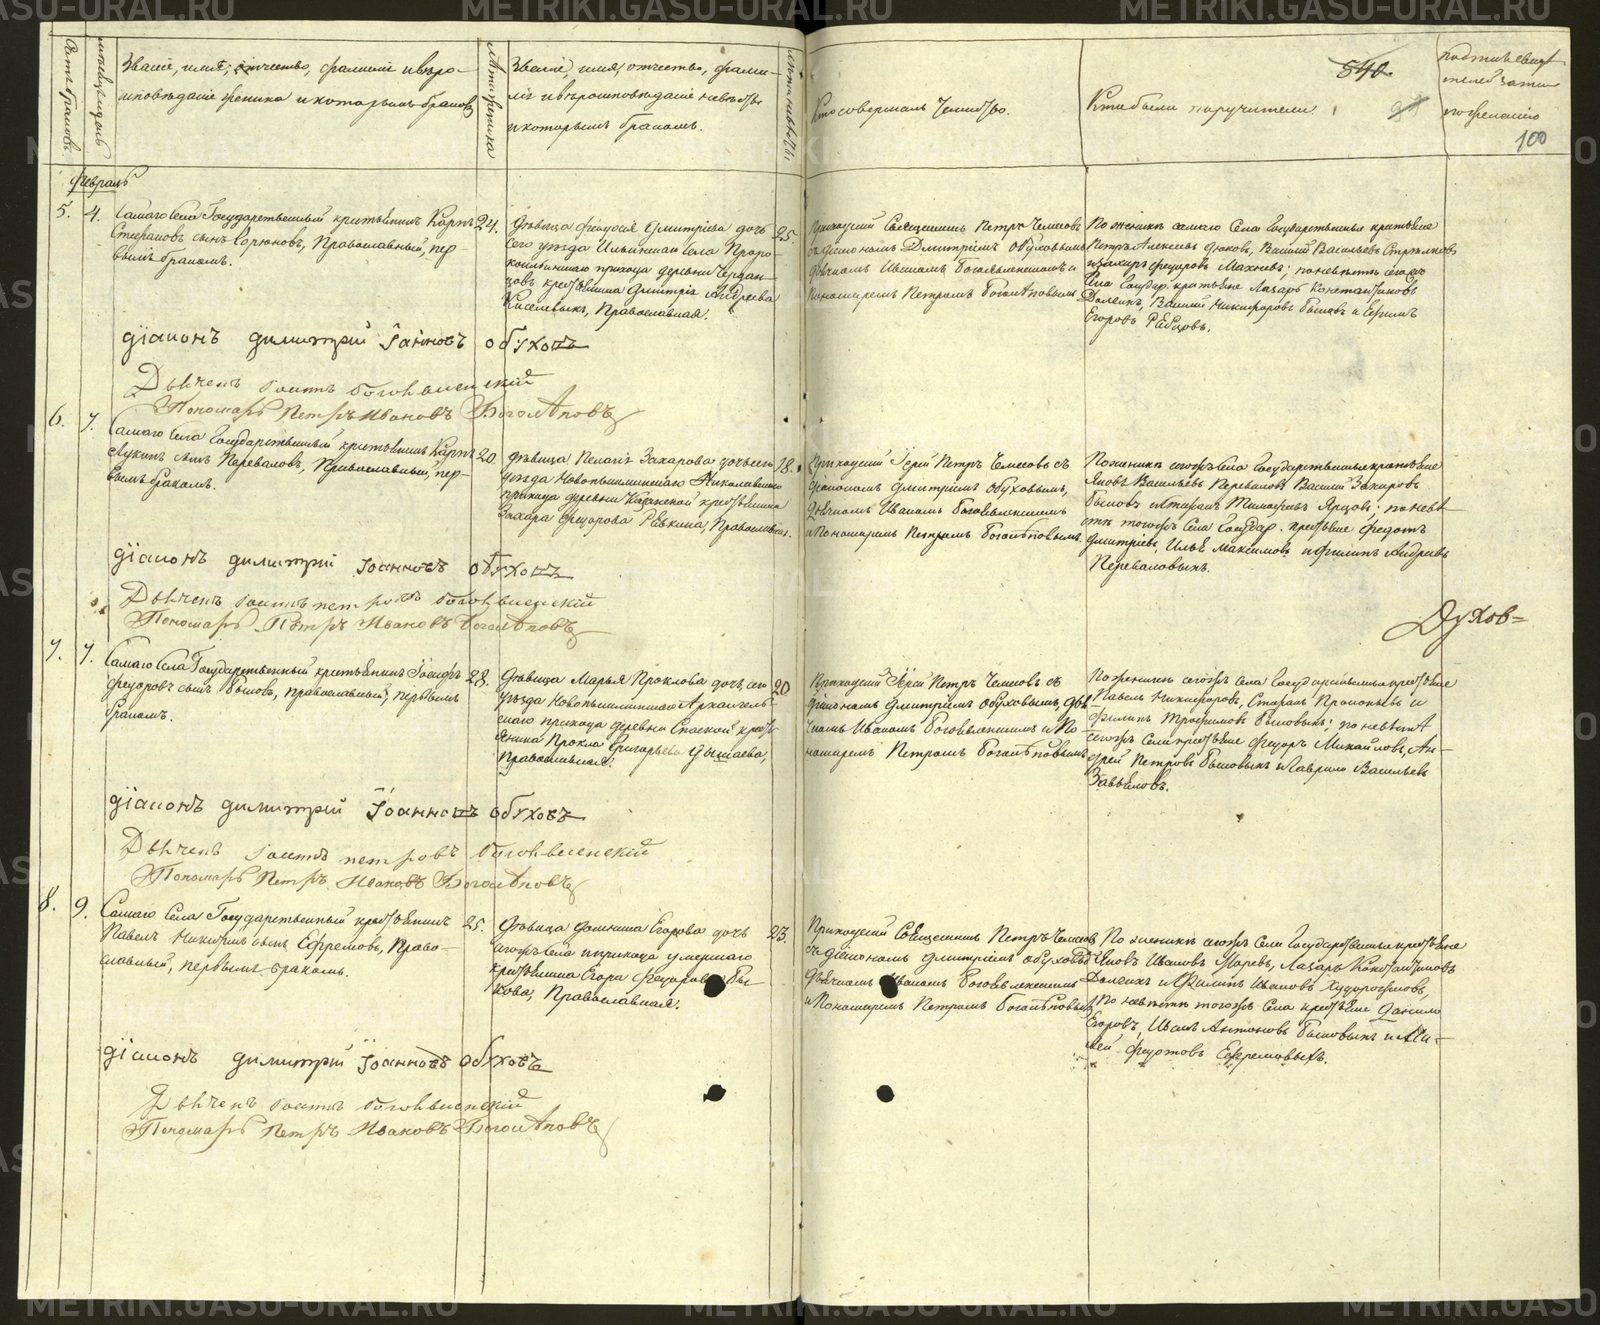 METRIKI.GASU-URAL.RU
Званіе, имя, отчество, фамиліе и вѣро-
исповѣданіе жениха и которымъ бракомъ
Званіе, имя, отчество, фами-
ліе и вѣроисповѣданіе невѣсты
и которымъ бракомъ.
Кто совершалъ Таинство.
Кто были поручители
540
100
Февраль
5. 4.
Самаго Села Государственный крестьянинъ Карпъ
Стефановъ сынъ
Православный, пер-
вымъ бракомъ.
24.
Дѣвица Феодосія Дмитріева дочь
сего уѣзда Ильинскаго Села Проро-
коильинскаго прихода деревни
крестьянина Дмитрія Андреева
Киселевыхъ, Православная.
25.
Приходскій Священникъ Петръ Челмсовъ
съ діакономъ Дмитріемъ Обуховымъ
Дьячкомъ Иваномъ Богоявленскимъ и
Пономаремъ Петромъ Боголѣповымъ
По женихѣ самаго Села Государственные крестьяне
Петръ Алексѣевъ Дюковъ, Василій Васильевъ Стрѣлковъ
и Захаръ Федоровъ Махневъ; по невѣстѣ сего же
Села Государ. крестьяне Лазарь Константиновъ
Василій Никифоровъ Быковъ и Ефимъ
Егоровъ Рѣбцовъ.
діаконъ димитрій Іанновъ обуховъ
Дьячекъ Іоаннъ богоявленскій
Пономарь Петръ Ивановъ Боголѣповъ
6. 7.
Самаго Села Государственный крестьянинъ Карпъ
Лукинъ сынъ Переваловъ, Православный, пер-
вымъ бракомъ.
20
Дѣвица Пелагія Захарова дочь сего
уѣзда Новопышминскаго Николаевскаго
прихода деревни
крестьянина
Захара Федорова Рѣвкина, Православная.
18.
Приходскій Іерей Петръ Челмсовъ съ
діакономъ Дмитріемъ Обуховымъ,
Дьячкомъ Иваномъ Богоявленскимъ
и Пономаремъ Петромъ Боголѣповымъ.
По женихѣ сего же Села Государственные крестьяне
Яковъ Васильевъ Переваловъ Василій Захаровъ
Быковъ и
Тимофеевъ Ярцовъ; по невѣ-
стѣ того же Села Государ. крестьяне Федотъ
Дмитріевъ, Илья Максимовъ и Филипъ Андреевъ
Переваловыхъ.
діаконъ димитрій Іоанновъ обуховъ
Дьячекъ Іоаннъ петровъ богоявленскій
Пономарь Петръ Ивановъ Боголѣповъ
Духов=
7. 7.
Самаго Села Государственный крестьянинъ Іосифъ
Федоровъ сынъ Быковъ, православный, первымъ
бракомъ.
28.
Дѣвица Марья Проклова дочь сего
уѣзда Новопышминскаго Архангель-
скаго прихода деревни Спаской кресть-
янина Прокла Григорьева
Православная.
20
Приходскій Іерей Петръ Челмсовъ съ
діакономъ Дмитріемъ Обуховымъ, Дья-
чкомъ Иваномъ Богоявленскимъ и По-
номаремъ Петромъ Боголѣповымъ
По женихѣ сего же Села Государственные крестьяне
Павелъ Никифоровъ, Стафей Прокопьевъ и
Филипъ Трофимовъ Быковыхъ; по невѣстѣ
сего же Села крестьяне Федоръ Михайловъ, Ан-
дрей Петровъ Быковыхъ и Гаврило Васильевъ
Завьяловъ.
діаконъ димитрій Іоанновъ обуховъ
Дьячекъ Іоаннъ петровъ богоявленскій
Пономарь Петръ Ивановъ Боголѣповъ
8. 9.
Самаго Села Государственный крестьянинъ
Павелъ Никитинъ сынъ Ефремовъ, Право-
славный, первымъ бракомъ.
25.
Дѣвица Домника Егорова дочь
сего же Села и прихода умершаго
крестьянина Егора Федорова Бы-
кова, Православная.
23.
Приходскій Священникъ Петръ Челмсовъ
съ діакономъ Дмитріемъ Обуховымъ
Дьячкомъ Иваномъ Богоявленскимъ
и Пономаремъ Петромъ Боголѣповымъ
По женихѣ сего же Села Государственные крестьяне
Яковъ Ивановъ
Лазарь Константиновъ
и Филипъ Ивановъ Худороговъ,
По невѣстѣ того же Села крестьяне Данило
Егоровъ, Иванъ Антоновъ Быковыхъ и
Федотовъ Ефремовыхъ.
діаконъ димитрій Іоанновъ обуховъ
Дьячекъ Іоаннъ богоявленскій
Пономарь Петръ Ивановъ Боголѣповъ
METRIKI.GASU-URAL.RU